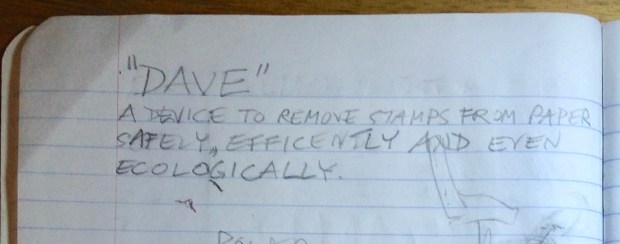 "DAVE"
A DEVICE TO REMOVE STAMPS FROM PAPER
SAFELY, EFFICENTLY AND EVEN
ECOLOGICALLY.